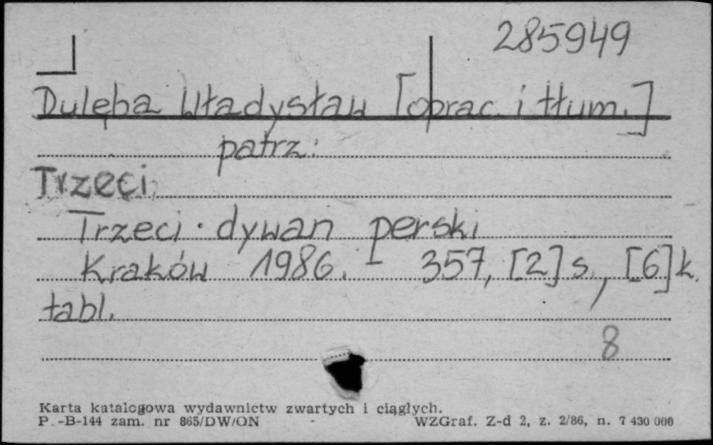 285949
Dulęba Władysław [oprac. i tłum.]
patrz:
Trzeci
Trzeci dywan perski
Kraków 1986. - 357, [2] s., [6] k.
tabl.
8
Karta katalogowa wydawnictw zwartych i ciągłych.
P.-B-144 zam. nr 865/DW/ON WZGraf. Z-d 2, z. 2/86, n. 7 430 000